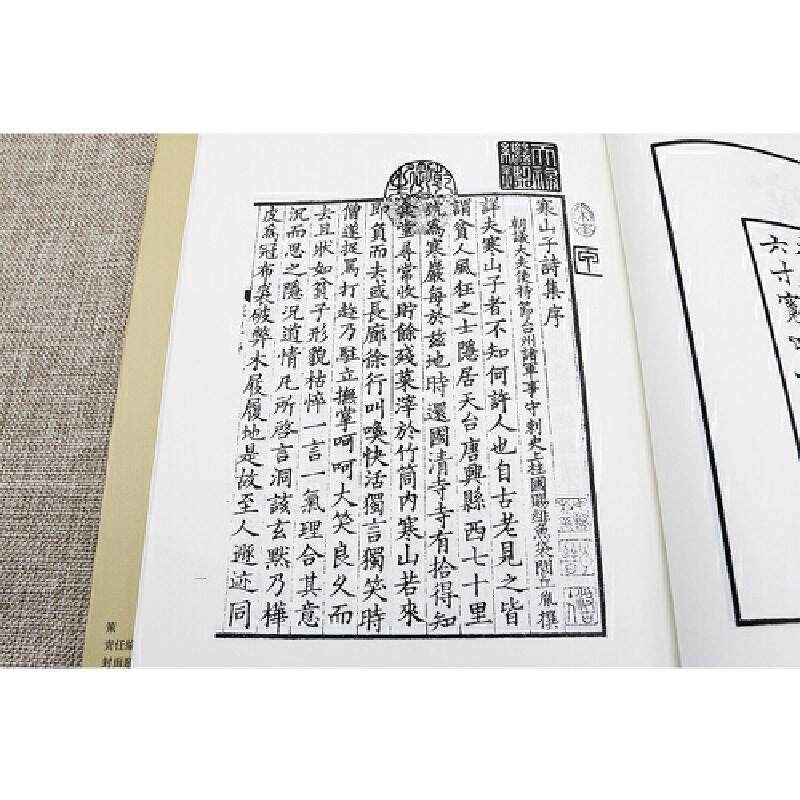 六寸寬
寒山子詩集序
朝議大夫使持節台州諸軍事守刺史上柱國賜緋魚袋閭丘胤撰
詳夫寒山子者不知何許人也自古老見之皆
謂貧人風狂之士隱居天台唐興縣西七十里
號爲寒巖每於茲地時還國清寺寺有拾得知
食堂尋常收貯餘殘菜滓於竹筒内寒山若來
即負而去或長廊徐行叫喚快活獨言獨笑時
僧遂捉罵打趁乃駐立撫掌呵呵大笑良久而
去且狀如貧子形貌枯悴一言一氣理合其意
沉而思之隱況道情凡所啓言洞該玄默乃樺
皮爲冠布裘破弊木屐履地是故至人遯迹同
策
責任編
封面